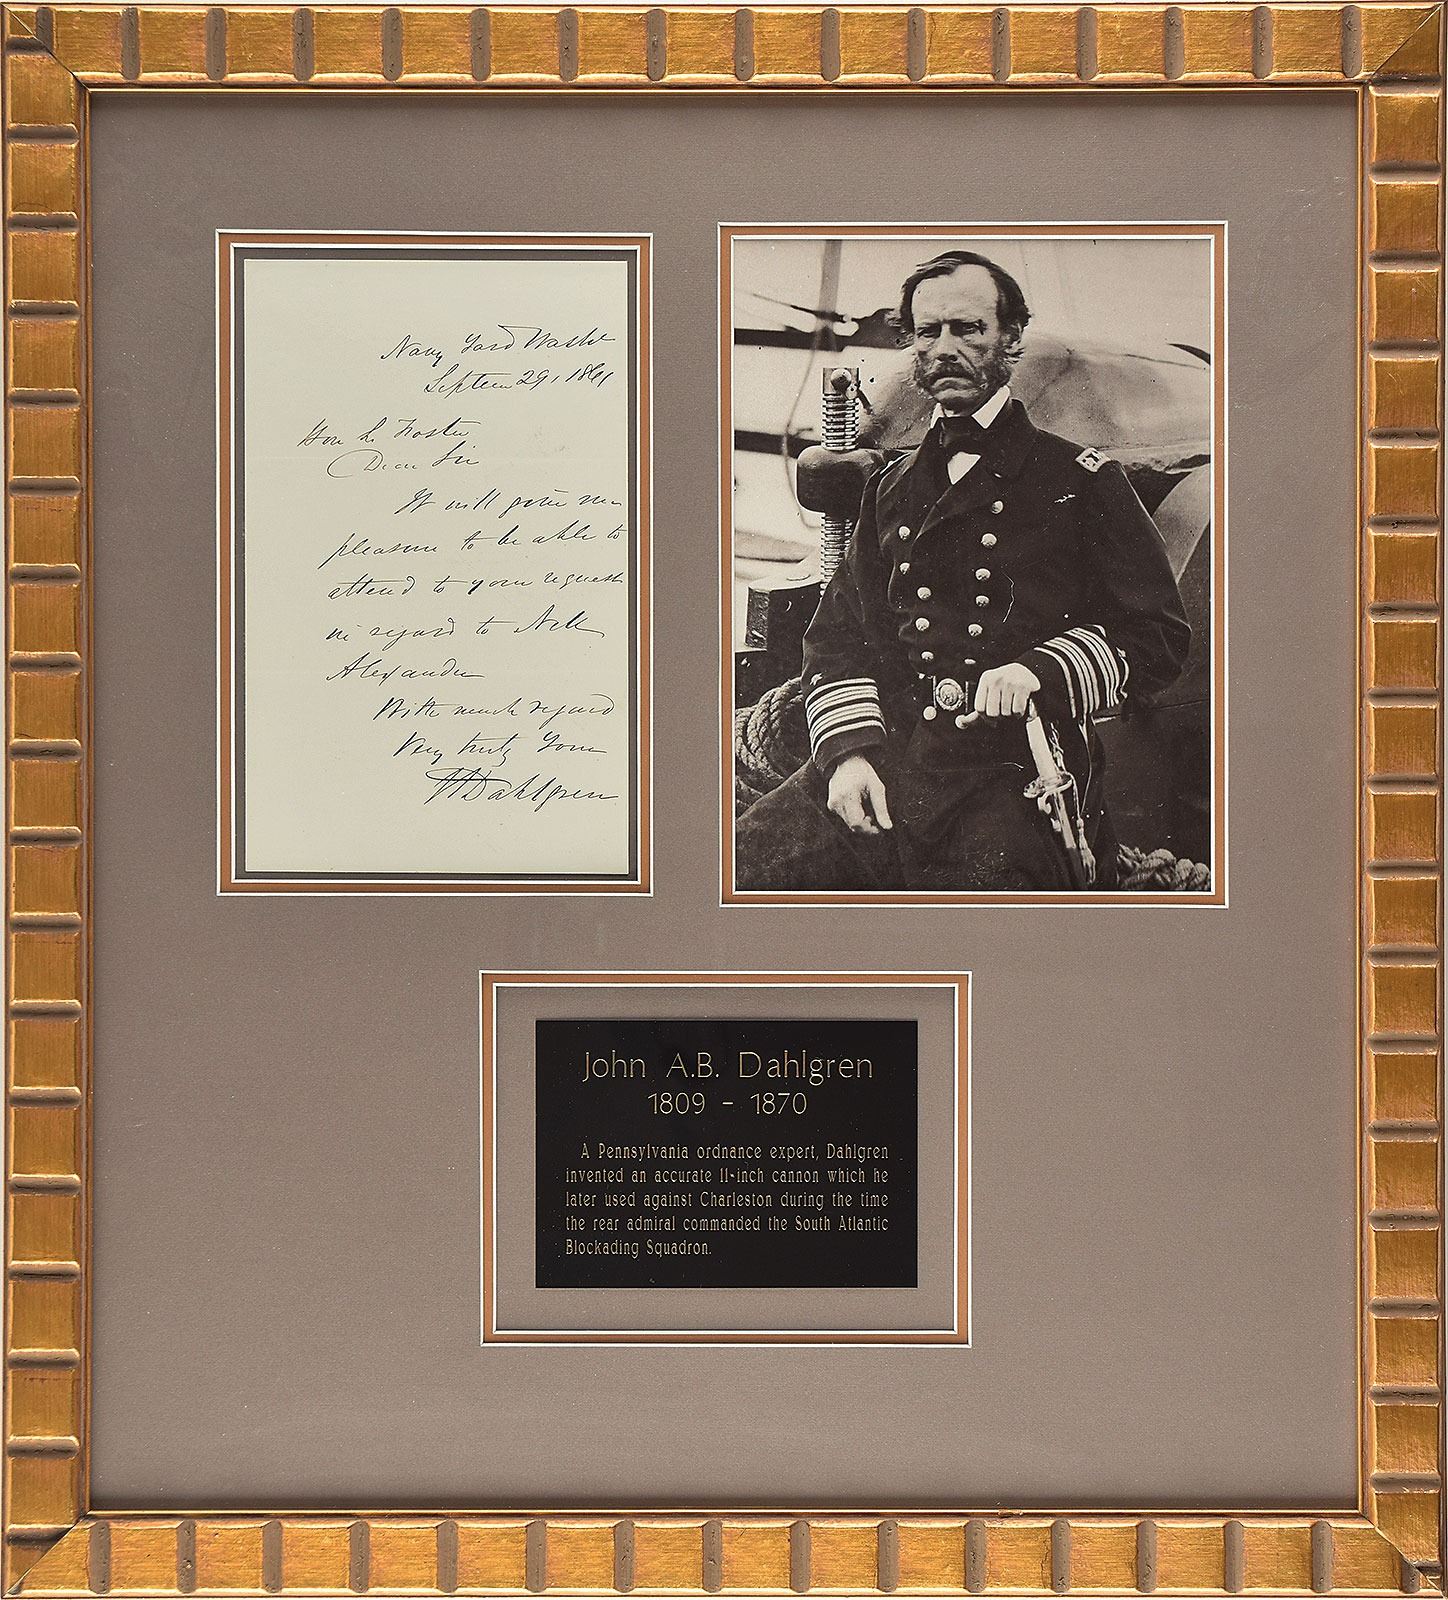 Navy Yard Washn
Septem 29, 1861
Hon L. Foster
Dear Sir
It will give me
pleasure to be able to
attend to your request
in regard to
Alexander
With much regard
Very truly Yours
JADahlgren
John A.B. Dahlgren
1809 - 1870
A Pennsylvania ordnance expert, Dahlgren
invented an accurate 11-inch cannon which he
later used against Charleston during the time
the rear admiral commanded the South Atlantic
Blockading Squadron.